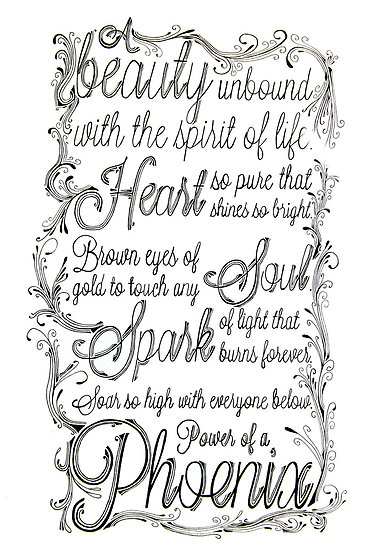 A
beauty unbound
with the spirit of life.
Heart so pure that
shines so bright.
Brown eyes of
gold to touch any Soul
Spark of light that
burns forever.
Soar so high with everyone below.
Power of a
Phoenix